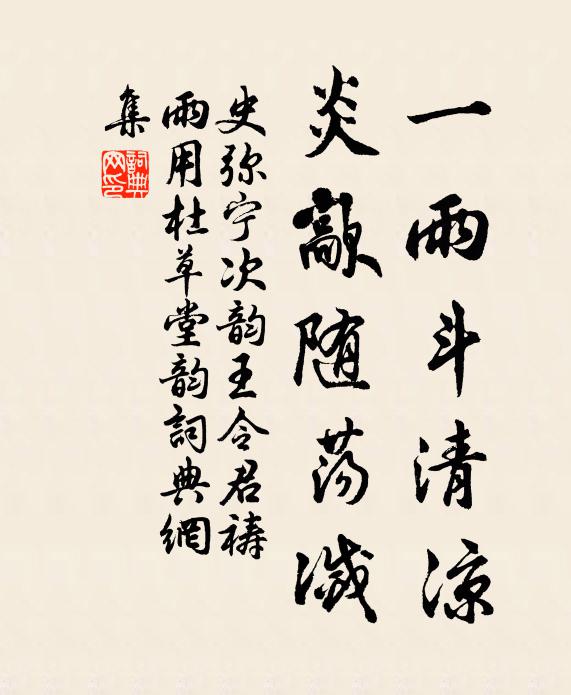 一雨斗清凉
炎歊随荡滅
史弥宁次韵王令君禱
雨用杜草堂韵詞典網
集
詞典网印